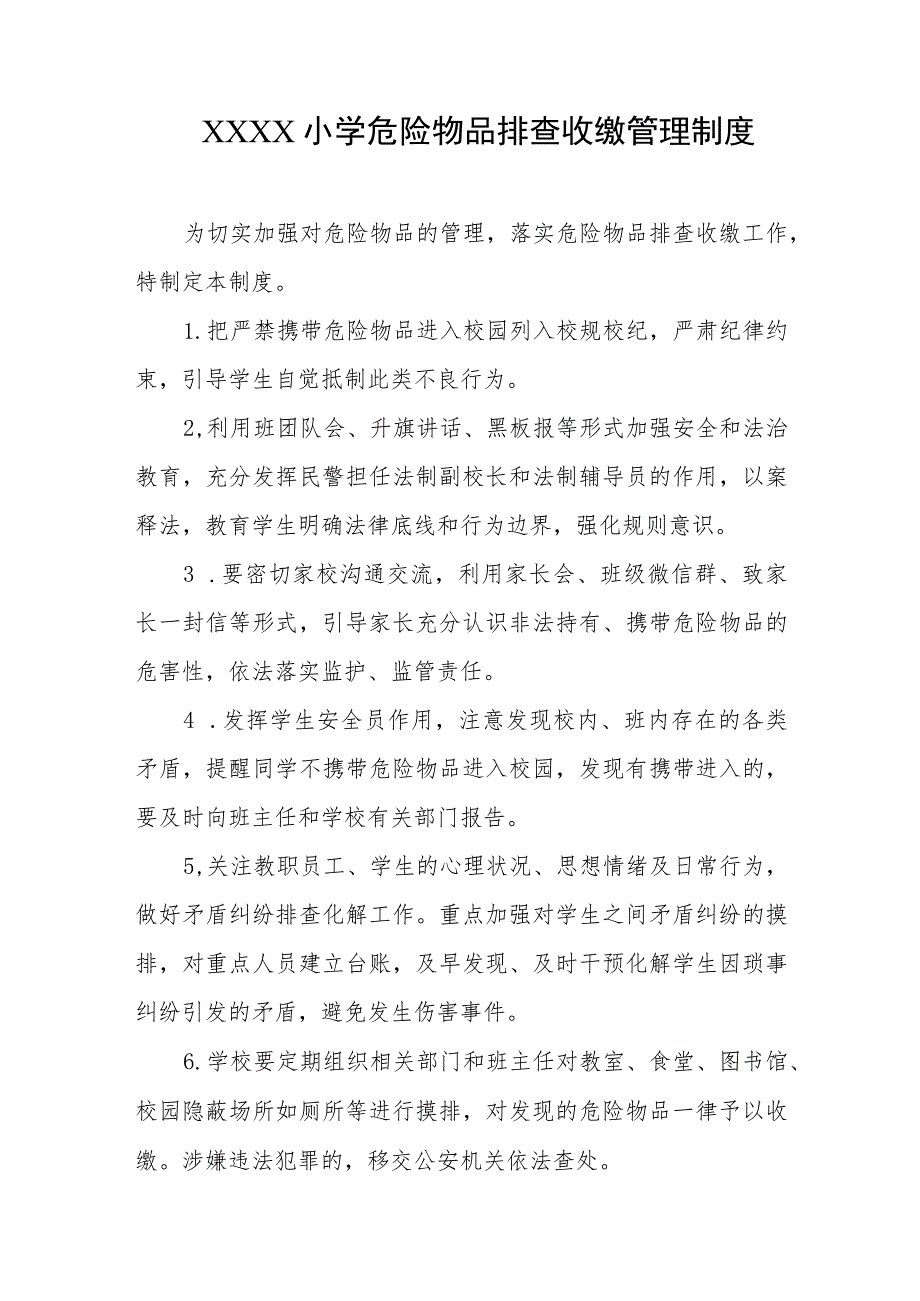 XXXX 小学危险物品排查收缴管理制度
为切实加强对危险物品的管理，落实危险物品排查收缴工作，
特制定本制度。
1.把严禁携带危险物品进入校园列入校规校纪，严肃纪律约
束，引导学生自觉抵制此类不良行为。
2,利用班团队会、升旗讲话、黑板报等形式加强安全和法治
教育，充分发挥民警担任法制副校长和法制辅导员的作用，以案
释法，教育学生明确法律底线和行为边界，强化规则意识。
3 .要密切家校沟通交流，利用家长会、班级微信群、致家
长一封信等形式，引导家长充分认识非法持有、携带危险物品的
危害性，依法落实监护、监管责任。
4 .发挥学生安全员作用，注意发现校内、班内存在的各类
矛盾，提醒同学不携带危险物品进入校园，发现有携带进入的，
要及时向班主任和学校有关部门报告。
5,关注教职员工、学生的心理状况、思想情绪及日常行为，
做好矛盾纠纷排查化解工作。重点加强对学生之间矛盾纠纷的摸
排，对重点人员建立台账，及早发现、及时干预化解学生因琐事
纠纷引发的矛盾，避免发生伤害事件。
6.学校要定期组织相关部门和班主任对教室、食堂、图书馆、
校园隐蔽场所如厕所等进行摸排，对发现的危险物品一律予以收
缴。涉嫌违法犯罪的，移交公安机关依法查处。